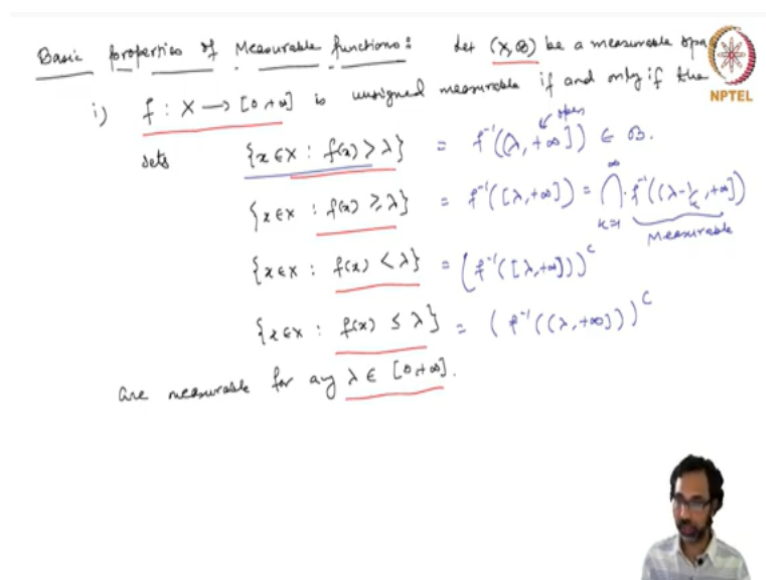 Basic properties of Measurable functions: Let (X, ℬ) be a measurable spa
NPTEL
i) f : X → [0,+∞] is unsigned measurable if and only if the
open
sets {x ∈ X : f(x) > λ} = f⁻¹((λ, +∞]) ∈ ℬ.
{x ∈ X : f(x) ≥ λ} = f⁻¹([λ, +∞]) = ⋂_{k=1}^{∞} f⁻¹((λ - 1/k, +∞])
Measurable
{x ∈ X : f(x) < λ} = (f⁻¹([λ, +∞]))^c
{x ∈ X : f(x) ≤ λ} = (f⁻¹((λ, +∞]))^c
are measurable for any λ ∈ [0,+∞].